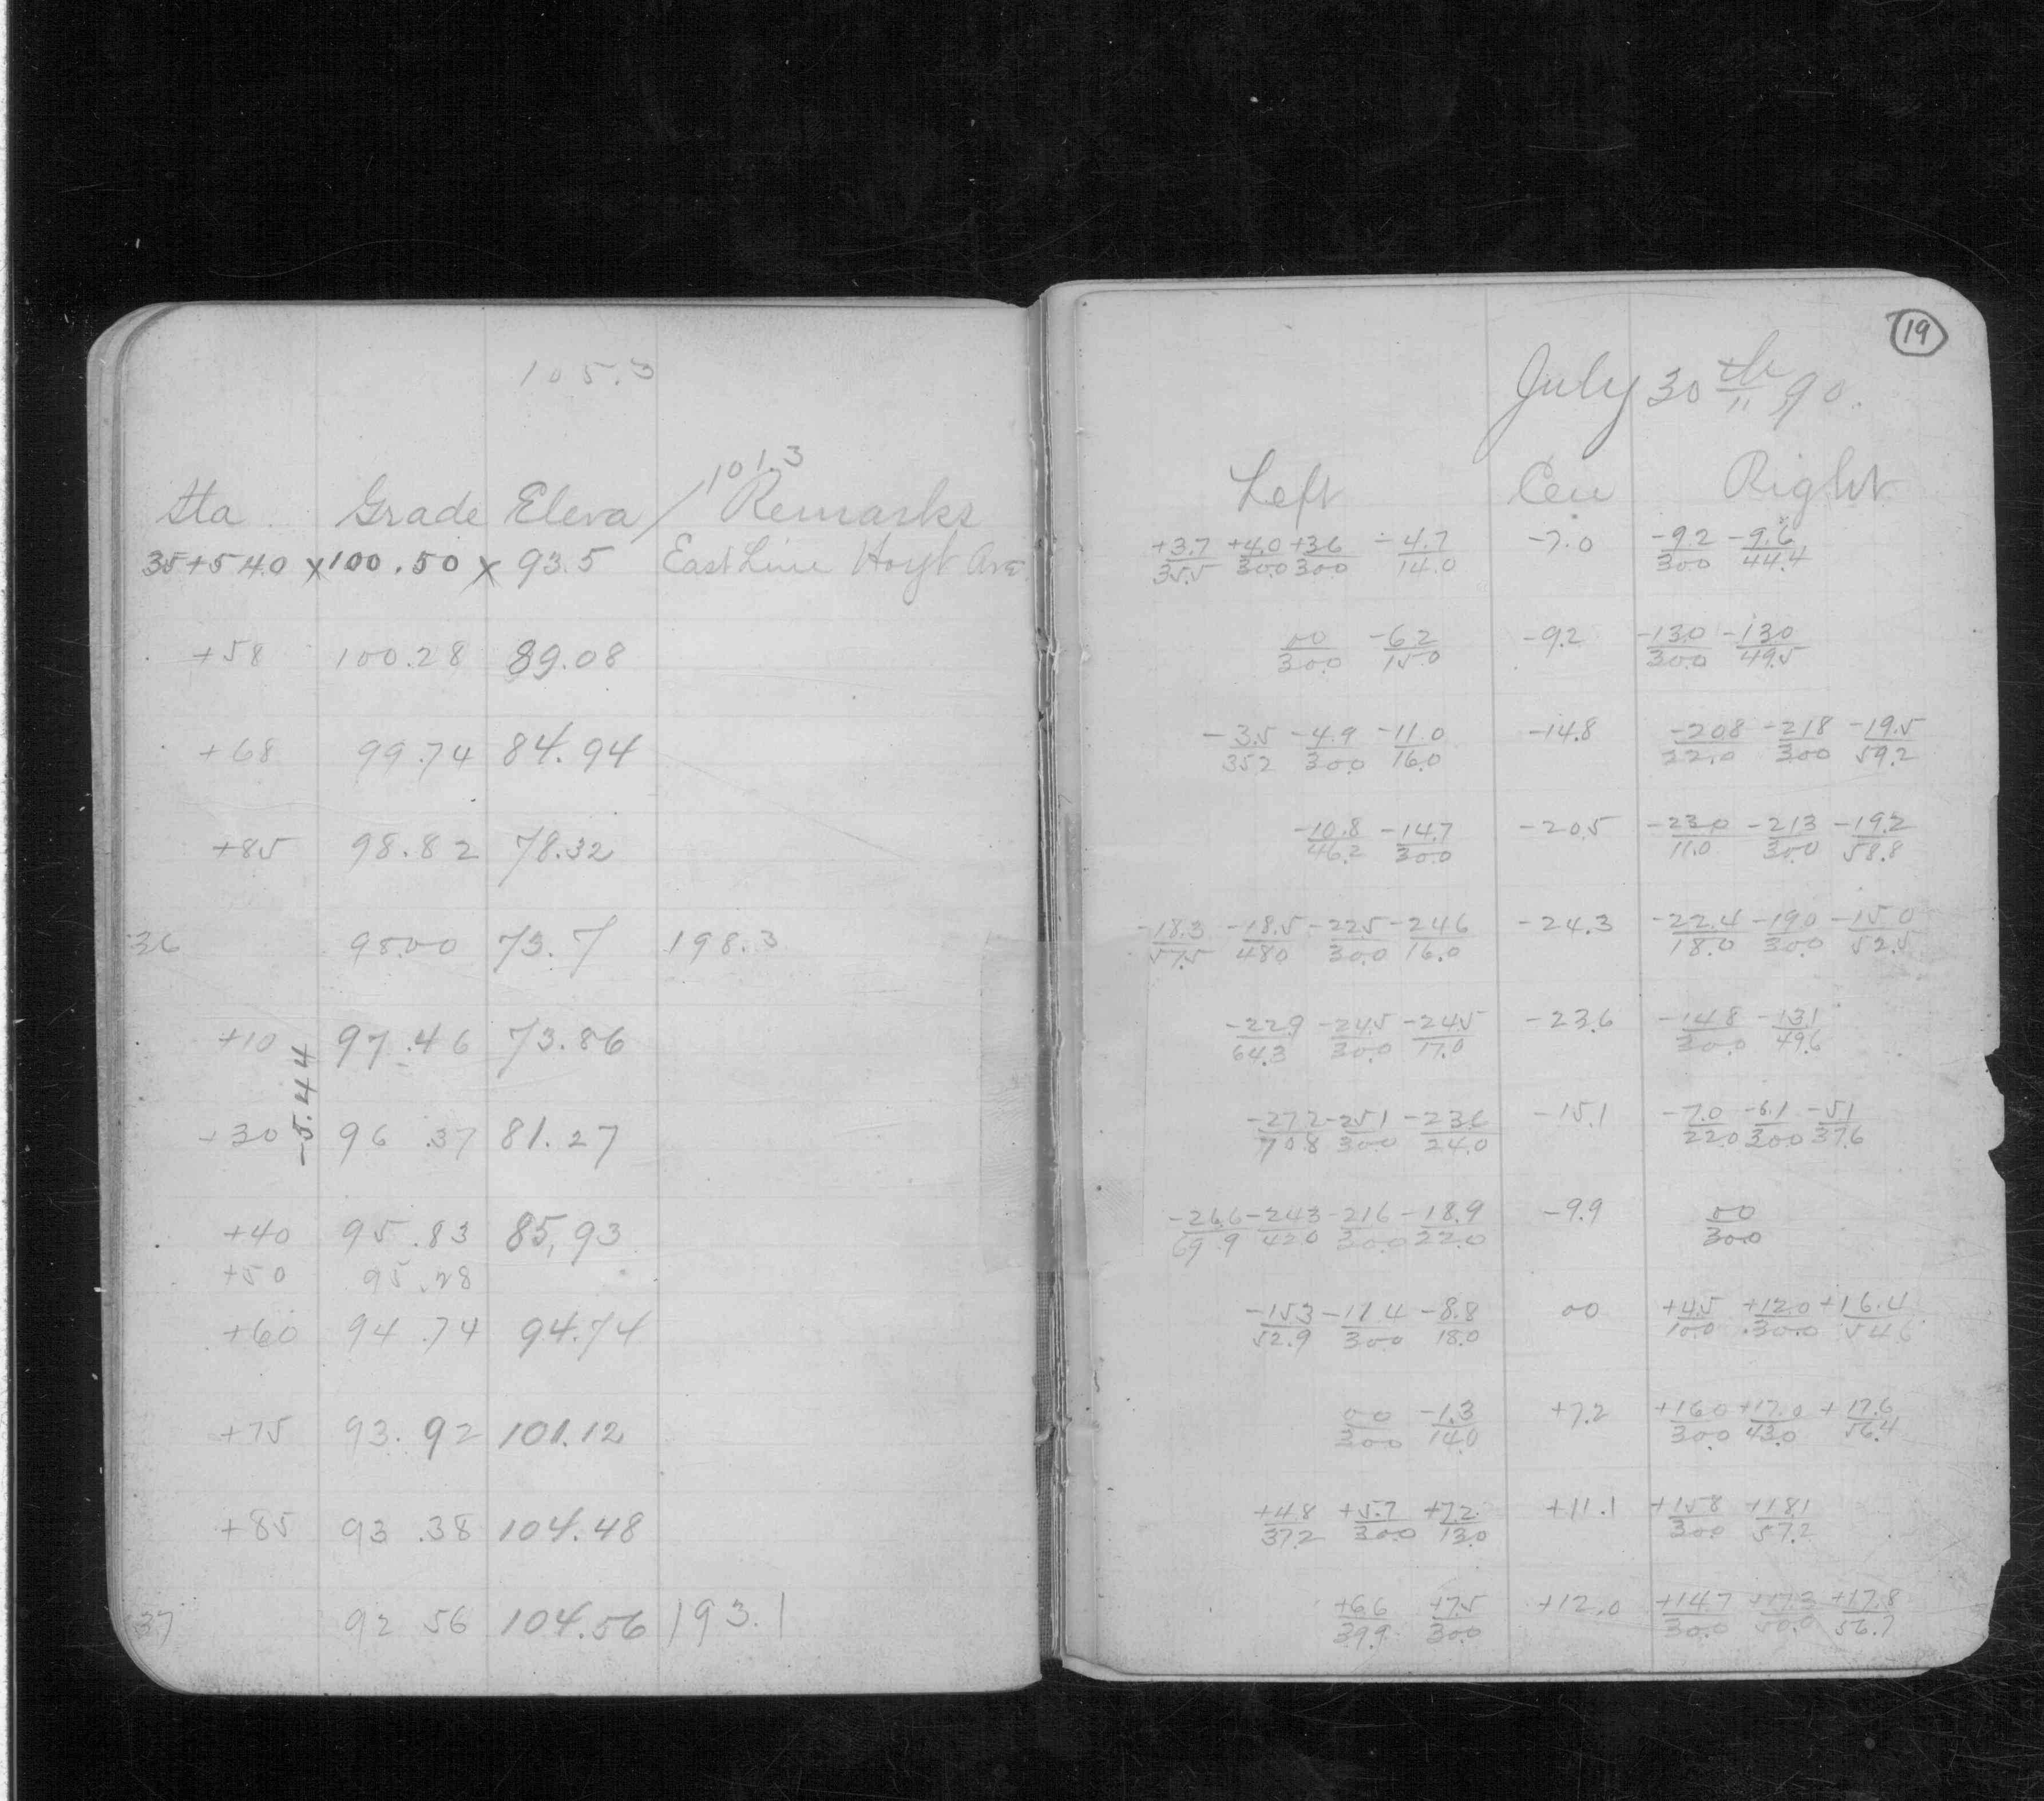 105.3
101.3
Sta Grade Eleva / Remarks
35+54.0 x 100.50 x 93.5 East Line Hoyt Ave.
+58 100.28 89.08
+68 99.74 84.94
+85 98.82 78.32
36 98.00 73.7 198.3
+10 97.46 73.86
-5.44
+30 96.37 81.27
+40 95.83 85.93
+50 95.28
+60 94.74 94.74
+75 93.92 101.12
+85 93.38 104.48
37 92 56 104.56 193.1
19
July 30th, 90.
Left Cen Right
+3.7 +4.0 +3.6 -4.7 -7.0 -9.2 -9.6
35.5 30.0 30.0 14.0 30.0 44.4
00 -6.2 -9.2 -13.0 -13.0
30.0 15.0 30.0 49.5
-3.5 -4.9 -11.0 -14.8 -20.8 -21.8 -19.5
35.2 30.0 16.0 22.0 30.0 59.2
-10.8 -14.7 -20.5 -23.0 -21.3 -19.2
46.2 30.0 11.0 30.0 58.8
-18.3 -18.5 -22.5 -24.6 -24.3 -22.4 -19.0 -15.0
57.5 48.0 30.0 16.0 18.0 30.0 52.5
-22.9 -24.5 -24.5 -23.6 -14.8 -13.1
64.3 30.0 17.0 30.0 49.6
-27.2 -25.1 -23.6 -15.1 -7.0 -6.1 -5.1
70.8 30.0 24.0 22.0 30.0 37.6
-26.6 -24.3 -21.6 -18.9 -9.9 00
69.9 42.0 30.0 22.0 30.0
-15.3 -11.4 -8.8 00 +4.5 +12.0 +16.4
52.9 30.0 18.0 10.0 30.0 54.6
00 -1.3 +7.2 +16.0 +17.0 +17.6
30.0 14.0 30.0 43.0 56.4
+4.8 +5.7 +7.2 +11.1 +15.8 +18.1
37.2 30.0 13.0 30.0 57.2
+6.6 +7.5 +12.0 +14.7 +17.3 +17.8
39.9 30.0 30.0 50.0 56.7